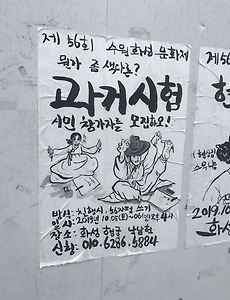 제 56회 수원화성 문화제
뭔가 좀 색다른?
과거시험
시민 참가자를 모집하오!
방식: 친행시, 56자평 쓰기
일시: 2019년 10.05(토)~06(일) 4시
장소: 화성 행궁 낙남헌
신청: 010.6286.5884
제56
현
2019.10
화성